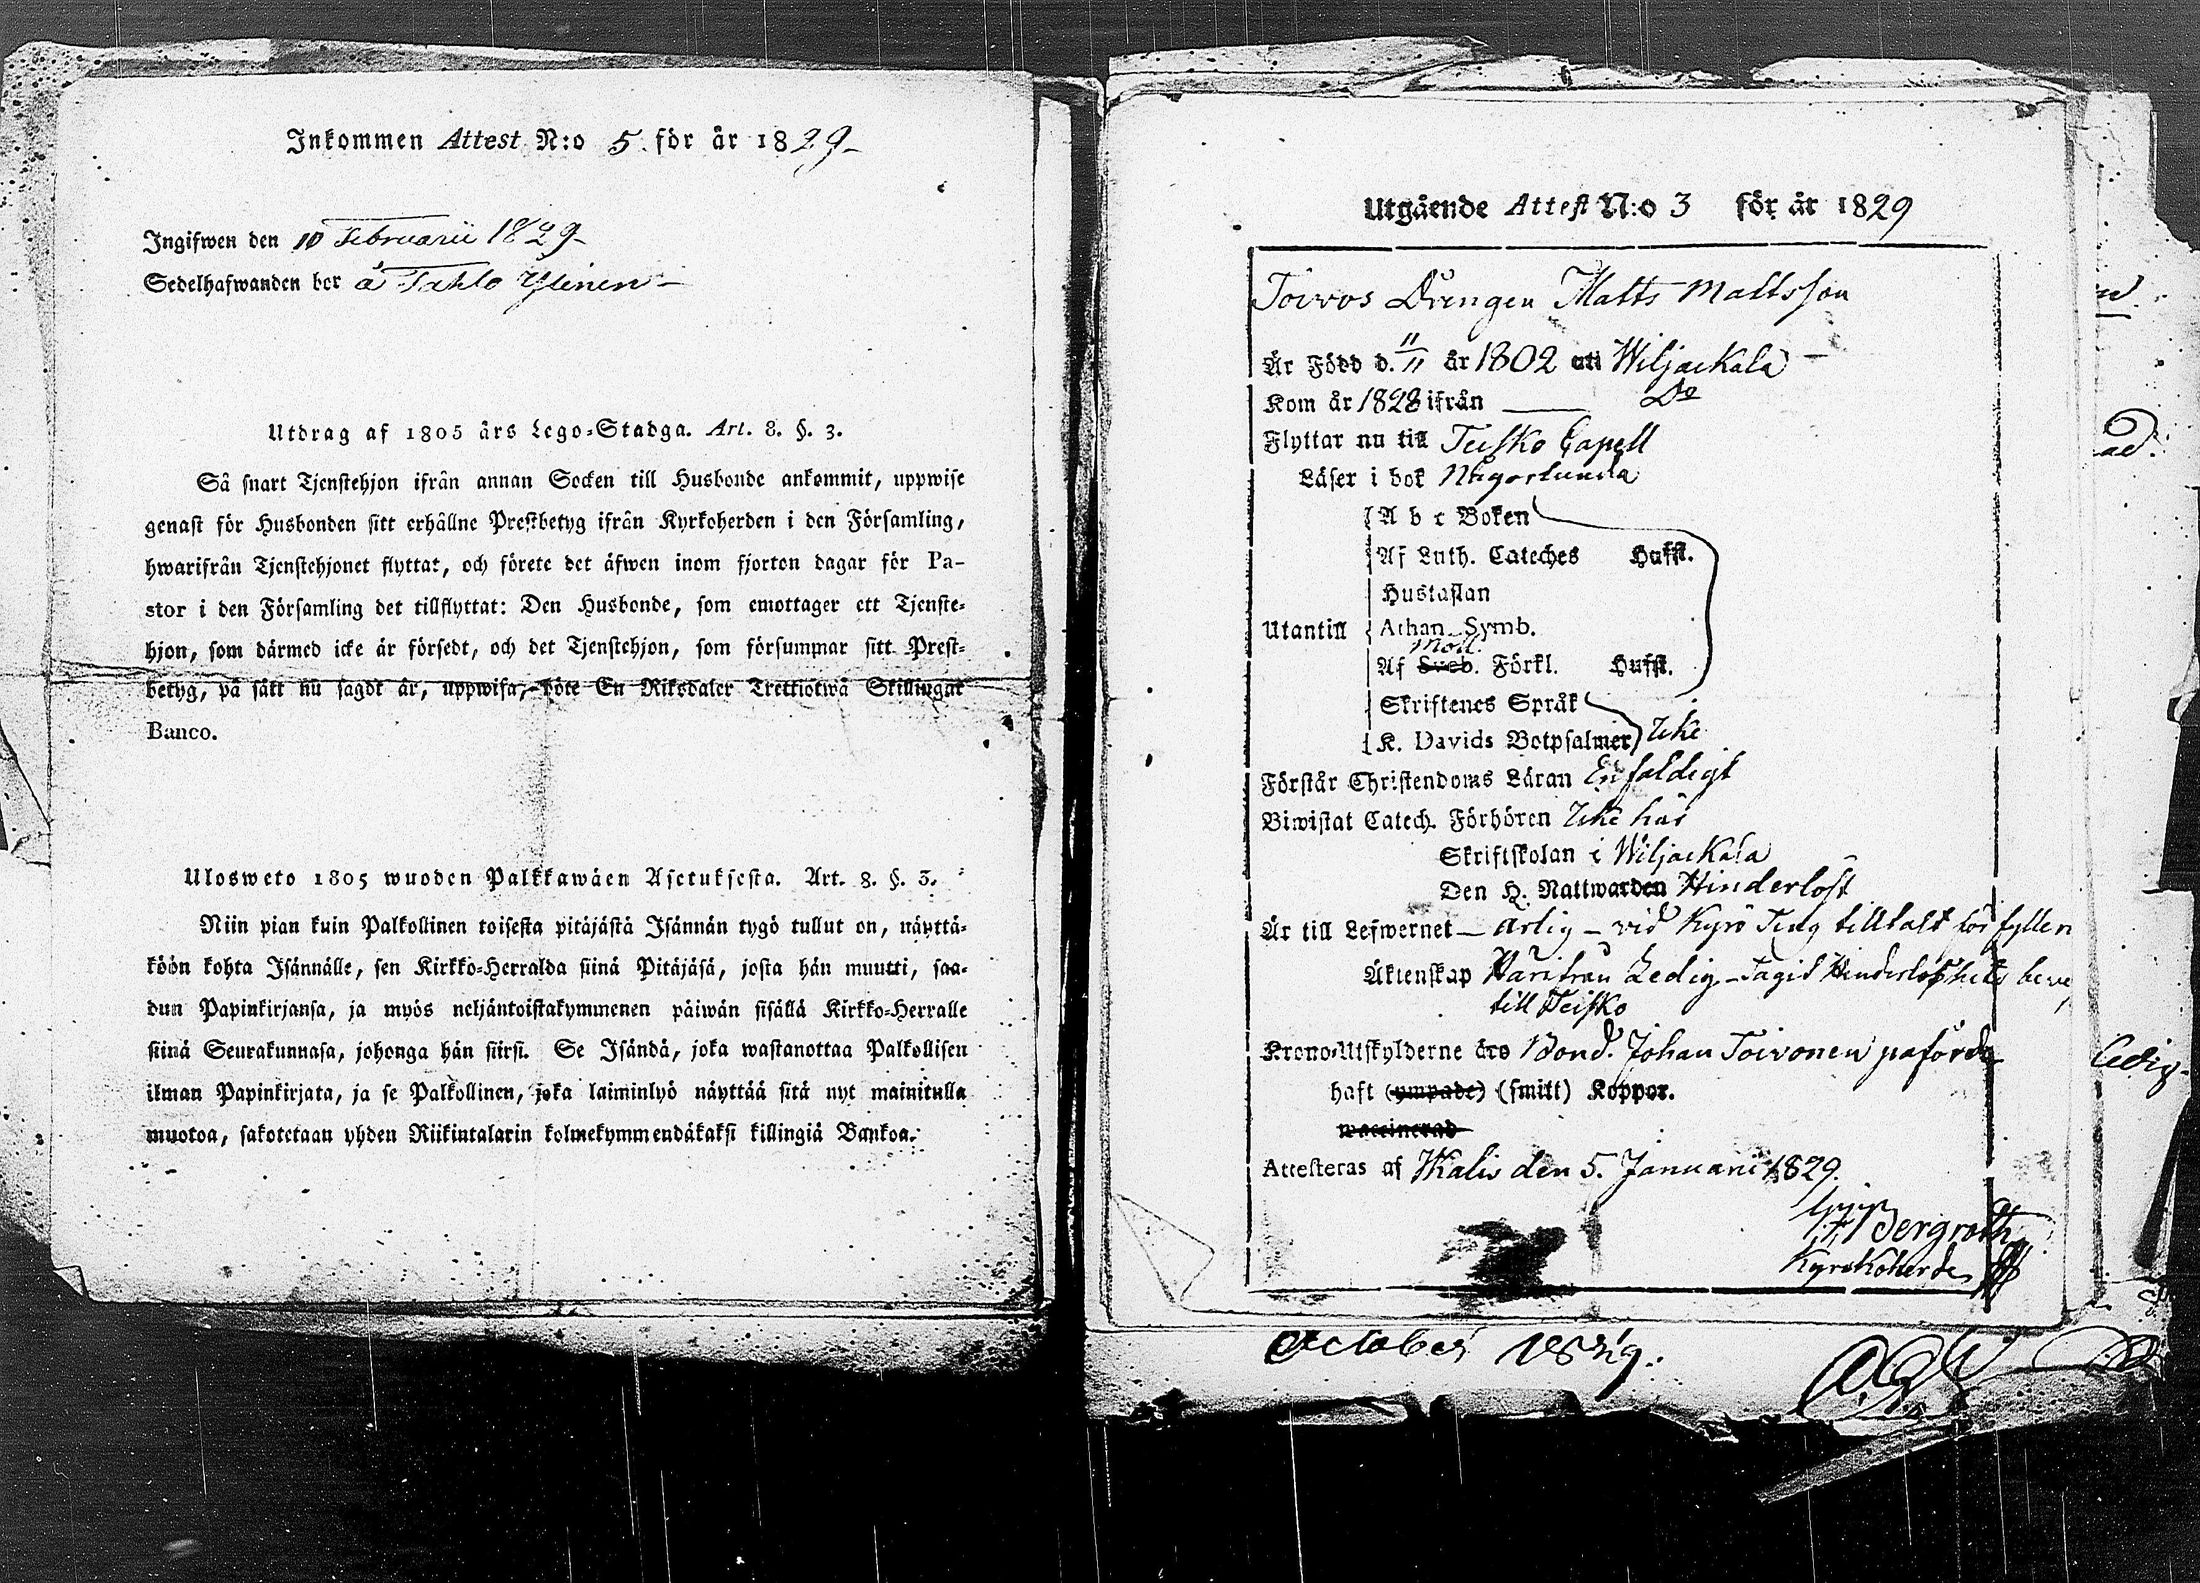 Inkommen Attest N:o 5. för år 1829-
Ingifwen den 10 Februarii 1829-
Sedelhafwanden bor å Tahlo Ylinen-
Utdrag af 1805 års Lego-Stadga. Art. 8. §. 3.
Så snart Tjenstehjon ifrån annan Socken till Husbonde ankommit, uppwise
genast för Husbonden sitt erhållne Prestbetyg ifrån Kyrkoherden i den Församling,
hwarifrån Tjenstehjonet flyttat, och förete det äfwen inom fjorton dagar för Pa-
stor i den Församling det tillflyttat: Den Husbonde, som emottager ett Tjenste-
hjon, som därmed icke är försedt, och det Tjenstehjon, som försummar sitt Prest-
betyg, på sätt nu sagdt är, uppwisa, böte En Riksdaler Trettiotwå Skillingar
Banco.
Ulosweto 1805 wuoden Palkkawäen Asetuksesta. Art. 8. §. 3.
Niin pian kuin Palkollinen toisesta pitäjästä Isännän tygö tullut on, näyttä-
köön kohta Isännälle, sen Kirkko-Herralda siinä Pitäjäsä, josta hän muutti, saa-
dun Papinkirjansa, ja myös neljäntoistakymmenen päiwän sisällä Kirkko-Herralle
siinä Seurakunnasa, johonga hän siirsi. Se Isändä, joka wastanottaa Palkollisen
ilman Papinkirjata, ja se Palkollinen, joka laiminlyö näyttää sitä nyt mainitulla
muotoa, sakotetaan yhden Riikintalarin kolmekymmendäkaksi killingiä Bankoa.
Utgående Attest N:o 3 för år 1829
Toivos Drengen Matts Mattsson
Är Född d. 11/11 år 1802 uti Wiljackala -
Kom år 1828 ifrån ___ Do
Flyttar nu till Teisko Capell
Läser i bok Någorlunda
A b c Boken
Af Luth. Cateches Hufst.
Hustaflan
Utantill Athan. Symb.
Moll.
Af Sveb. Förkl. Hufst.
Skriftenes Språk
K. Davids Botpsalmer) Icke
Förstår Christendoms Läran Enfaldigt
Biwistat Catech. Förhören Icke här
Skriftskolan i Wiljackala
Den H. Nattwarden Hinderlöst
Är till Lefwernet - ärlig - vid Kyro Ting tilltalt för fylleri
Äktenskap Härifrån Ledig - Tagit Hinderlöshets
till Teisko
Krono-Utskylderne äro Bond. Johan Toivonen påförde
haft (ympade) (smitt) Koppor.
waccinerad
Attesteras af Ikalis den 5. Januarii 1829.
Bergroth
Kyrkoherde
October 1831
ad.
Ledig-